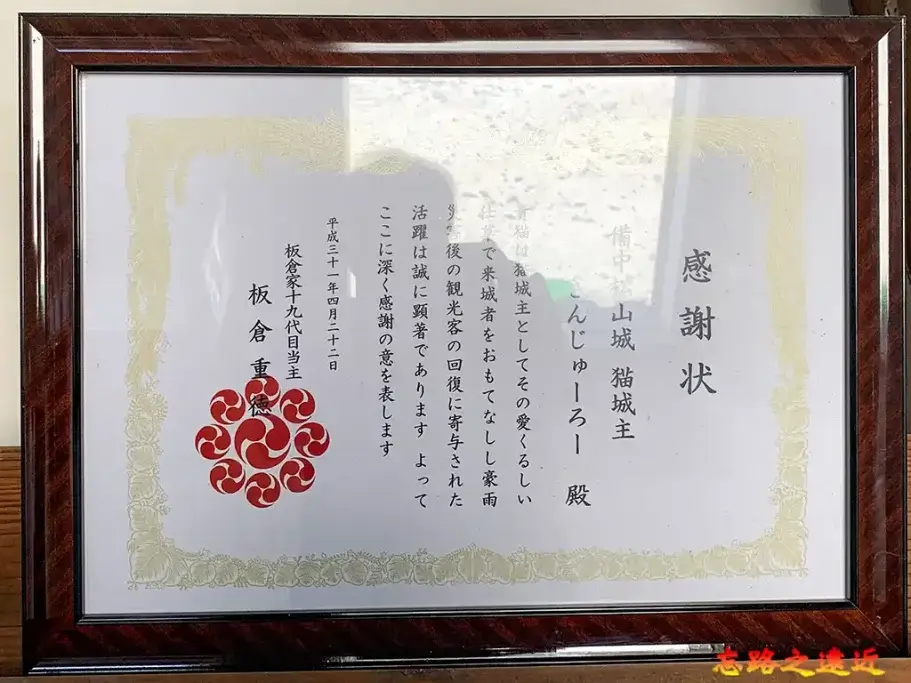 感謝状
備中松山城 猫城主
さんじゅーろー 殿
貴猫は猫城主としてその愛くるしい
仕草で来城者をおもてなしし豪雨
災害後の観光客の回復に寄与された
活躍は誠に顕著であります よって
ここに深く感謝の意を表します
平成三十一年四月二十二日
板倉家十九代目当主
板倉重徳
志路之遠近